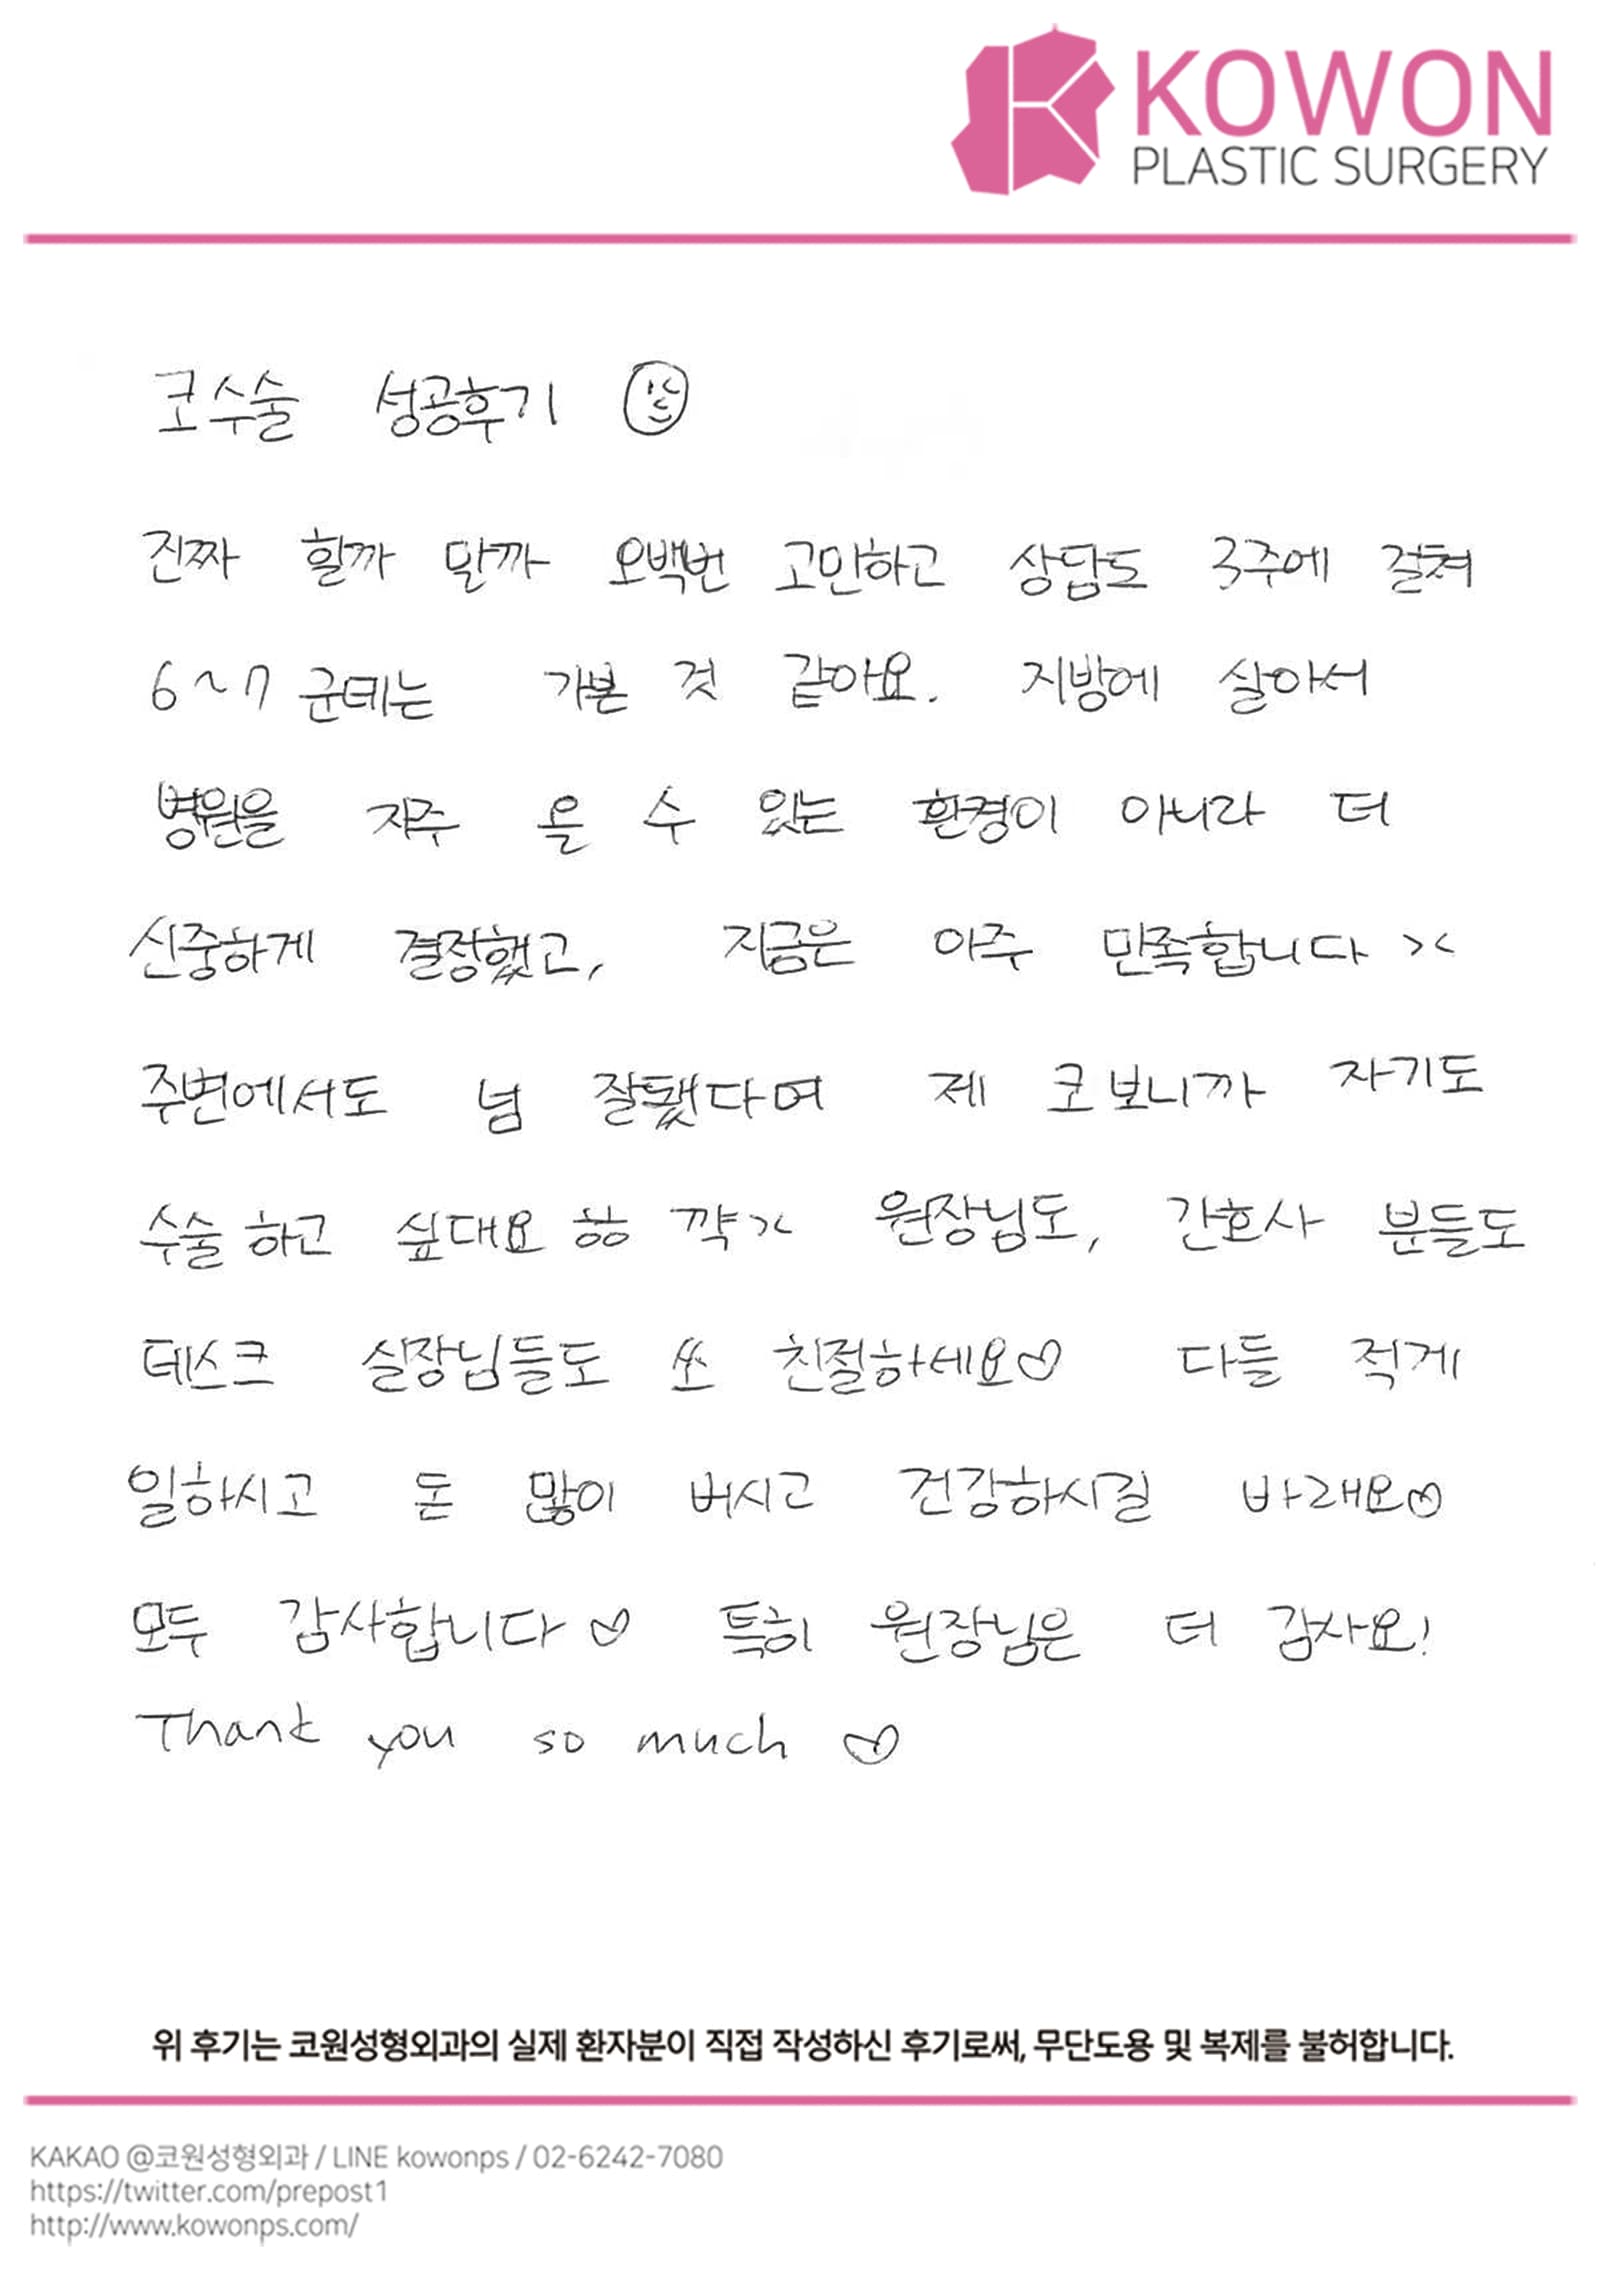 KOWON
PLASTIC SURGERY
코수술 성공후기
진짜 할까 말까 오백번 고민하고 상담도 3주에 걸쳐
6~7군데는 가본 것 같아요. 지방에 살아서
병원을 자주 올 수 있는 환경이 아니라 더
신중하게 결정했고, 지금은 아주 만족합니다 ><
주변에서도 넘 잘됐다며 제 코보니까 자기도
수술하고 싶대요 ㅎㅎ 꺅>< 원장님도, 간호사 분들도
데스크 실장님들도 쏘 친절하세요♡ 다들 적게
일하시고 돈 많이 버시고 건강하시길 바래요♡
모두 감사합니다♡ 특히 원장님은 더 감사요!
Thank you so much ♡
위 후기는 코원성형외과의 실제 환자분이 직접 작성하신 후기로써, 무단도용 및 복제를 불허합니다.
KAKAO @코원성형외과 / LINE kowonps / 02-6242-7080
https://twitter.com/prepost1
http://www.kowonps.com/